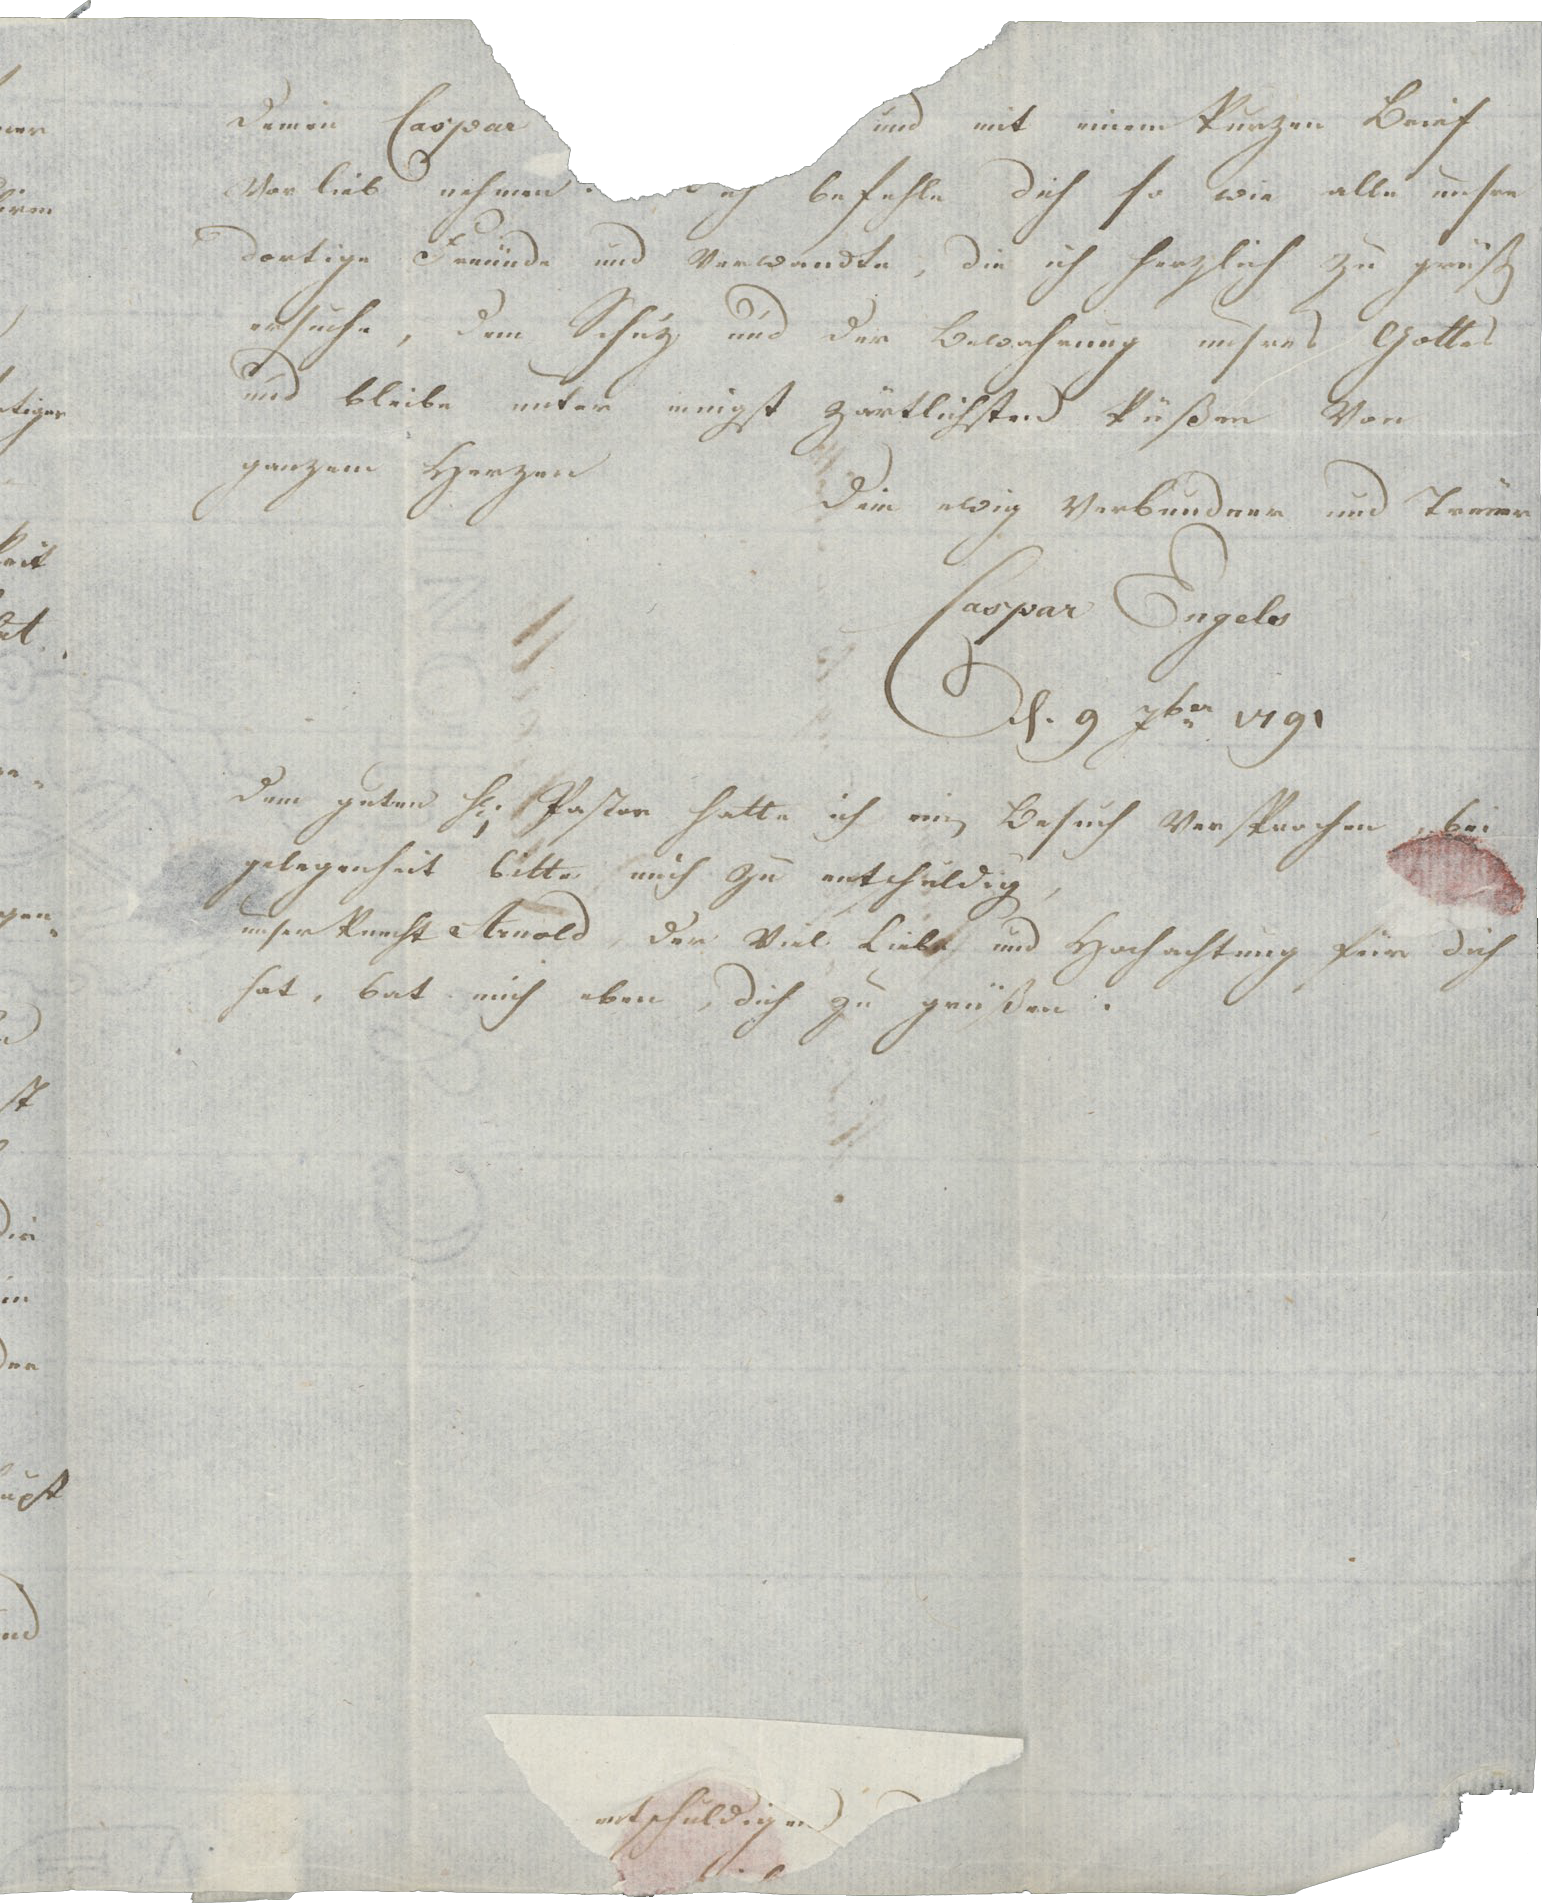 Deinen Caspar und mit einem Kurzen Brief
Vor lieb nehmen. ich befehle dich so wie alle unsre
dortige Freünde und Verwandte, die ich herzlich zu grüß
ersuche, dem Schuz und der Bewahrung unsres Gottes
und bleibe unter innigst zärtlichsten Küßen Von
ganzem Herzen
Dein ewig Verbundner und Treüer
Caspar Engels
d. 9 7ber 1791
Dem guten H. Pastor hatte ich ein Besuch Versprochen, bei
gelegenheit bitte mich zu entschuldig,
unser Knecht Arnold, der Viel Liebe und Hochachtung für dich
hat, bat mich eben, dich zu grüßen.
entschuldigen